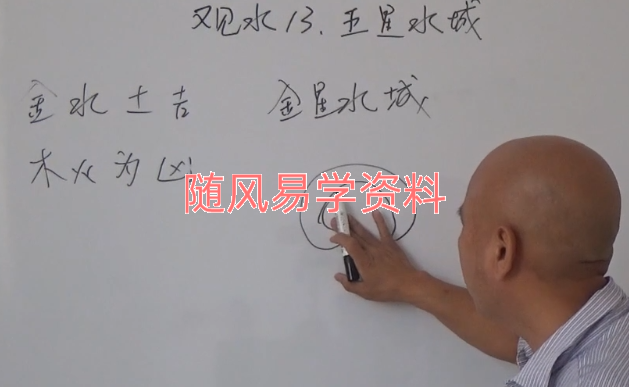 观水13.五星水城
金水土吉 金星水城
木火为凶
随风易学资料